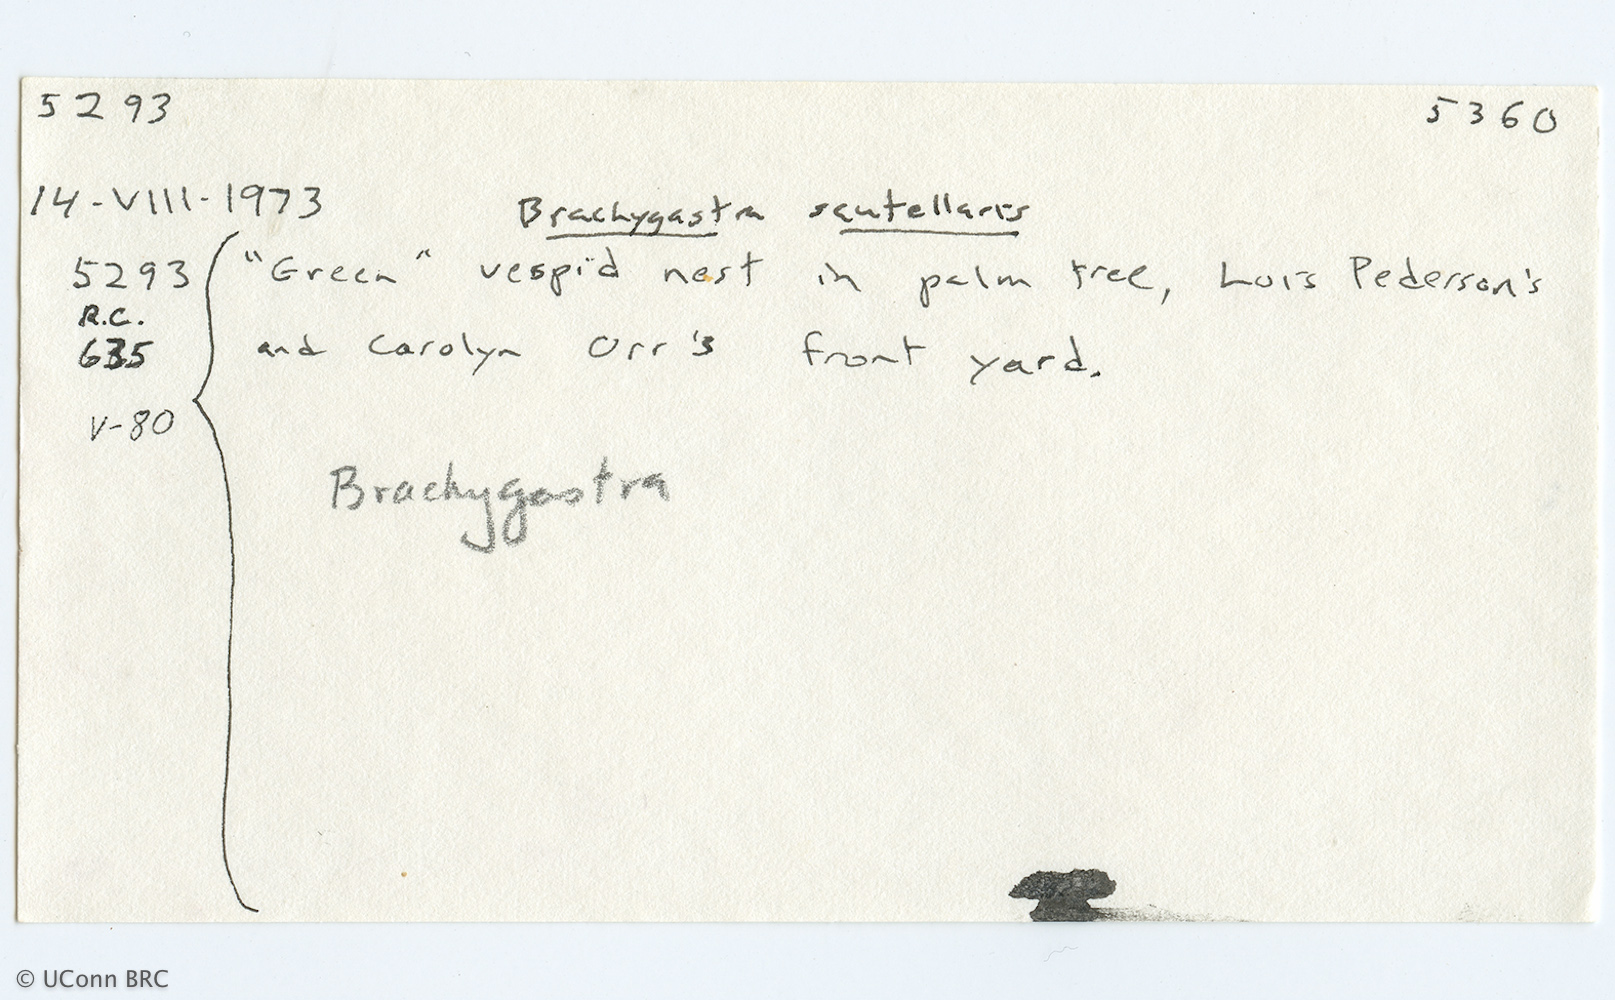 5293 5360
14-VIII-1973 Brachygastra scutellaris
5293 "Green" vespid nest in palm tree, Lois Pederson's
R.C.
635 and Carolyn Orr's front yard.
V-80
Brachygastra
© UConn BRC